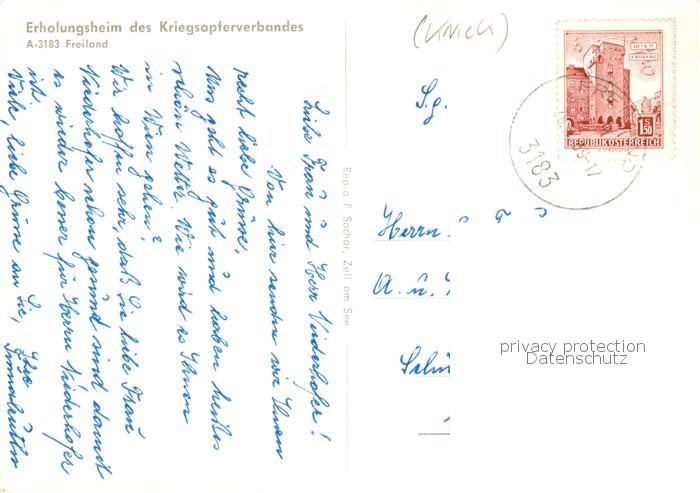 Erholungsheim des Kriegsopferverbandes
A-3183 Freiland
Liebe Frau und Herr Niederhofer!
Von hier senden wir Ihnen
recht liebe Grüsse.
Uns geht es gut und haben heißes
schönes Wetter. Wie wird es Ihnen
in Wien gehen?
Wir hoffen sehr, daß Sie liebe Frau
Niederhofer schon gesund sind damit
es wieder besser für Herrn Niederhofer
ist.
Viele, liebe Grüsse an Sie, Ihre
Repro F. Sochor, Zell am See
(Knick)
S.g.
Herrn
A. u.
WIEN
ERDBERG
1.50
S
REPUBLIK ÖSTERREICH
3183
privacy protection
Datenschutz